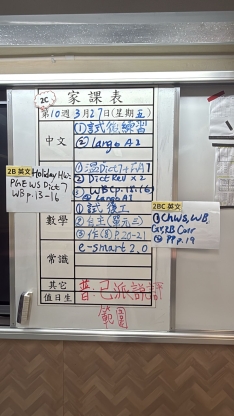 2C 家課表
第10週 3月27日(星期五)
中文
① 試
練習
② largo A2
① 温Dict 7
② Dict Rev x 2
③ WB p.15-(6)
④ Largo A1
數學
① 試
② 台主(單示三)
③ 作(8) P.20-21
常識
e-smart 2.0
其它
值日生
普:已派說話
範圍
2B 英文
Holiday Hw:
WS Dict 7
WB p.13-16
2BC 英文
① Ch WB, WB,
GE, RB Corr
② PP p.19